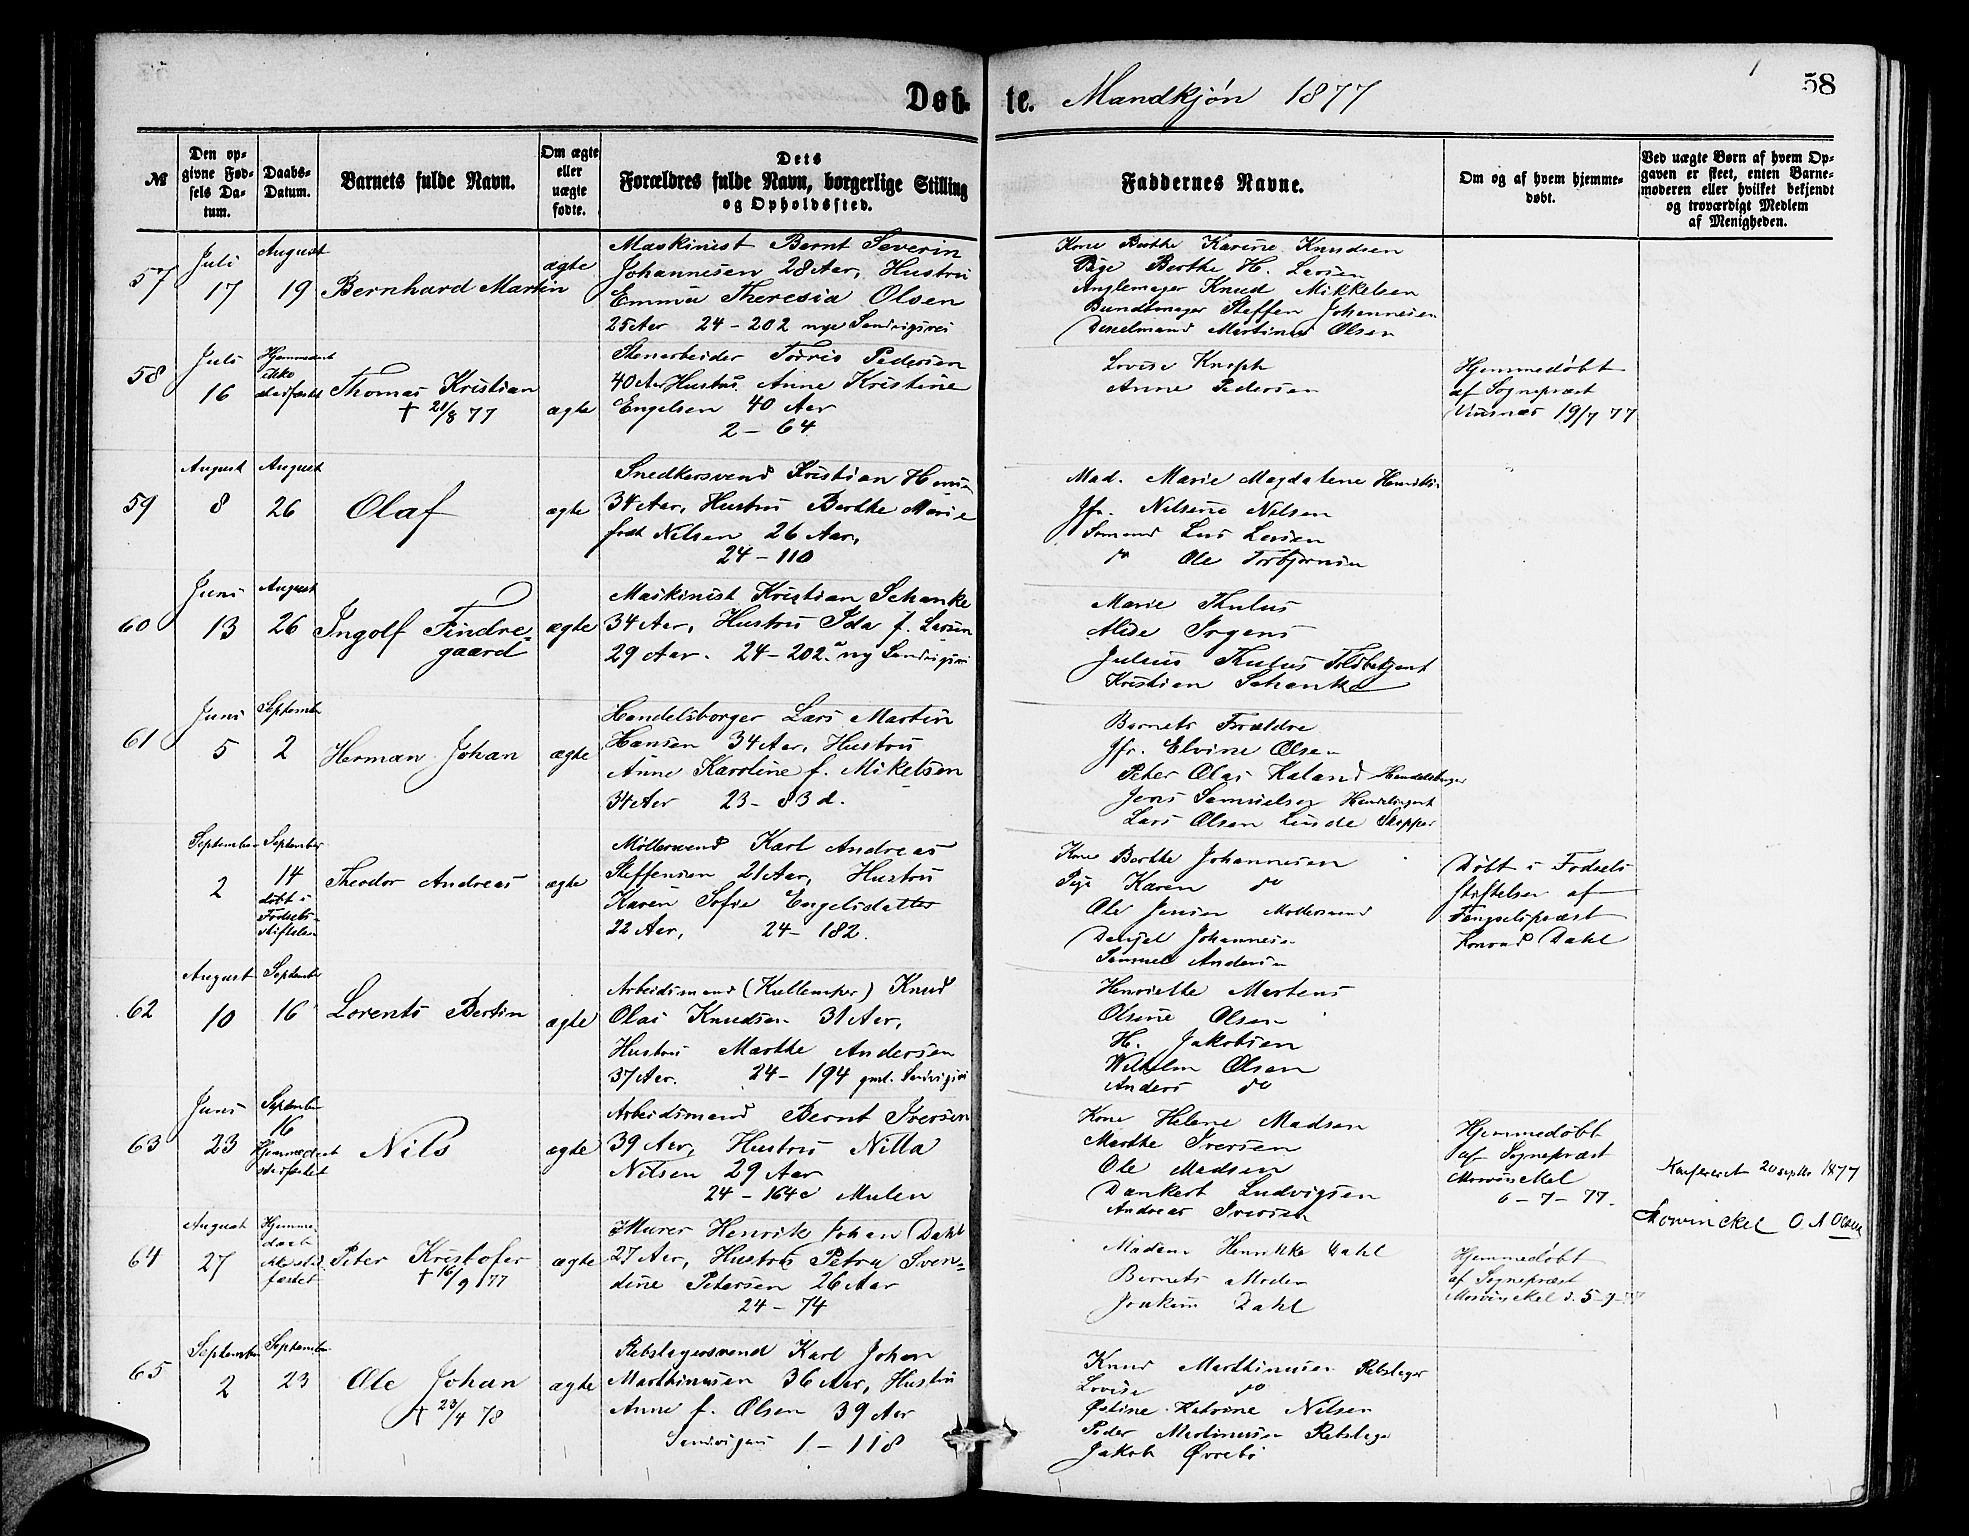 58
Døbte. Mandkjøn 1877
№
Den opgivne Fødsels Datum.
Daabs-Datum.
Barnets fulde Navn.
Om ægte eller uægte fødte.
Dets Forældres fulde Navn, borgerlige Stilling og Opholdssted.
Faddernes Navne.
Om og af hvem hjemmedøbt.
Ved uægte Børn af hvem Opgaven er skeet, enten Barnemoderen eller hvilket bekjendt og troværdigt Medlem af Menigheden.
57
Juli
17
August
19
Bernhard Martin
ægte
Maskinist Bernt Severin
Johannesen 28 Aar, Hustru
Emma Theresia Olsen
25 Aar 24 - 202 nye Sandvigsvei
Kone Birthe Karine Knudsen
Pige Berthe H. Larsen
Anglemager Knud Mikkelsen
Bundtmager Steffen Johannesen
Martinus Olsen
58
Juli
16
Hjemmedøbt
ikke
stadfæstet
Thomas Kristian
† 21/8 77
ægte
Stenarbeider Torris Pedersen
40 Aar Hustru Anne Kristine
Engelsen 40 Aar
2 - 64
Lovise Knoph
Anne Pedersen
Hjemmedøbt
af Sognepræst
Vinsnes 19/7 77
59
August
8
August
26
Olaf
ægte
Snedkersvend Kristian
34 Aar, Hustru Berthe Marie
født Nilsen 26 Aar,
24 - 110
Mad. Marie Magdalene
Jfr. Nilsine Nilsen
Sømand Lars Larsen
do Ole Torbjørnsen
60
Juni
13
August
26
Ingolf Findre-
gaard
ægte
Maskinist Kristian Schanke
34 Aar, Hustru Ida f. Larsen
29 Aar. 24 - 202. ny Sandvigsvei
Marie Thulus
Alide Irgens
Julius Thulus Toldbetjent
Kristian Schanke
61
Juni
5
September
2
Herman Johan
ægte
Handelsborger Lars Martin
Hansen 34 Aar, Hustru
Anne Karoline f. Mikelsen
34 Aar 23 - 83 d.
Barnets Forældre
Jfr. Elvine Olsen
Peter Olai Kaland Handelsborger
Jens Samuelsen Handelsagent
Lars Olsen Linde Skipper
September
2
September
14
døbt i
Fødsels-
stiftelsen
Theodor Andreas
ægte
Møllersvend Karl Andreas
Steffensen 21 Aar, Hustru
Karen Sofie Engelsdatter
22 Aar, 24 - 182.
Kone Berthe Johannesen
Pige Karen do
Ole Jensen Møllersvend
Daniel Johannesen
Samuel Andersen
Døbt i Fødsels
stiftelsen af
Fængselspræst
Konrad Dahl
62
August
10
September
16
Lorents Bertin
ægte
Arbeidsmand (Kullemper) Knud
Olai Knudsen 31 Aar,
Hustru Marthe Andersen
37 Aar. 24 - 194 gml. Sandvigsvei
Henriette Martens
Olsine Olsen
H. Jakobsen
Wilhelm Olsen
Anders do
63
Juni
23
September
16
Hjemmedøbt
stadfæstet
Nils
ægte
Arbeidsmand Bernt Iversen
39 Aar, Hustru Nilla
Nilsen 29 Aar
24 - 164c Mulen
Kone Helene Madsen
Marthe Iversen
Ole Madsen
Dankert Ludvigsen
Andreas Iversen
Hjemmedøbt
af Sognepræst
Mowinckel
6 - 7 - 77.
Konfereret 20 septbr 1877
Mowinckel O. A. Olsen
64
August
27
Hjemme-
døbt
ikke stad
fæstet
Peter Kristofer
† 16/9 77
ægte
Murer Henrik Johan Dahl
27 Aar, Hustru Petra Sven-
dine Petersen 26 Aar
24 - 74
Madam Henrikke Dahl
Barnets Moder
Joakim Dahl
Hjemmedøbt
af Sognepræst
Mowinckel d. 5-9-77
65
September
2
September
23
Ole Johan
† 23/4 78
ægte
Rebslagersvend Karl Johan
Marthinusen 36 Aar, Hustru
Anne f. Olsen 39 Aar
Sandvigen 1 - 118
Knud Marthinusen Rebslager
Lovise do
Østine Katrine Nilsen
Peder Martinusen Rebslager
Jakob Øvrebø